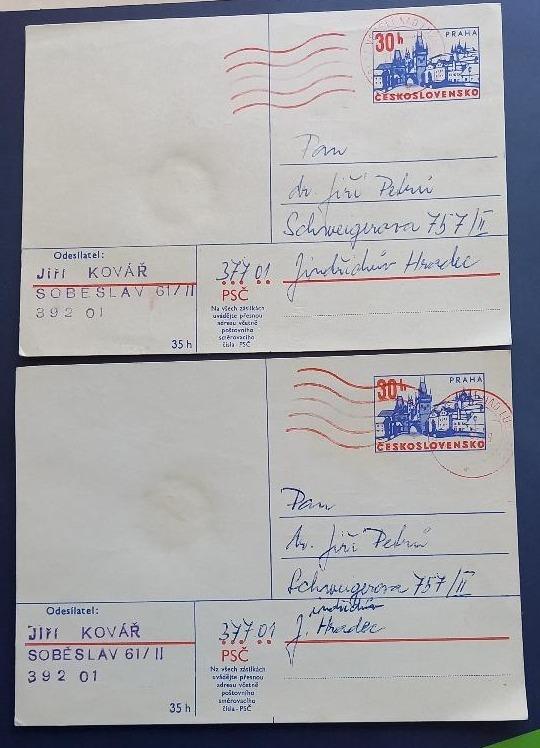 30h
PRAHA
ČESKOSLOVENSKO
Pan
dr. Jiří Petrů
Schweigerova 757/II
Jindřichův Hradec
Odesílatel:
Jiří KOVÁŘ
SOBĚSLAV 61/II
392 01
35 h
377 01
PSČ
Na všech zásilkách
uvádějte přesnou
adresu včetně
poštovního
směrovacího
čísla - PSČ
30h
PRAHA
ČESKOSLOVENSKO
Pan
dr. Jiří Petrů
Schweigerova 757/II
indřichův
J. Hradec
Odesílatel:
Jiří KOVÁŘ
SOBĚSLAV 61/II
392 01
35 h
377 01
PSČ
Na všech zásilkách
uvádějte přesnou
adresu včetně
poštovního
směrovacího
čísla - PSČ